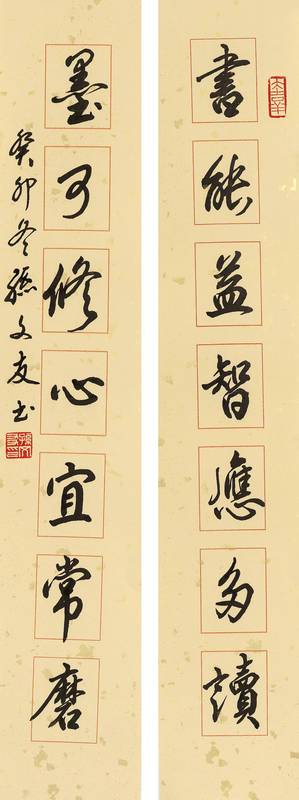 書能益智應多讀
墨可修心宜常磨
癸卯冬孫文友書